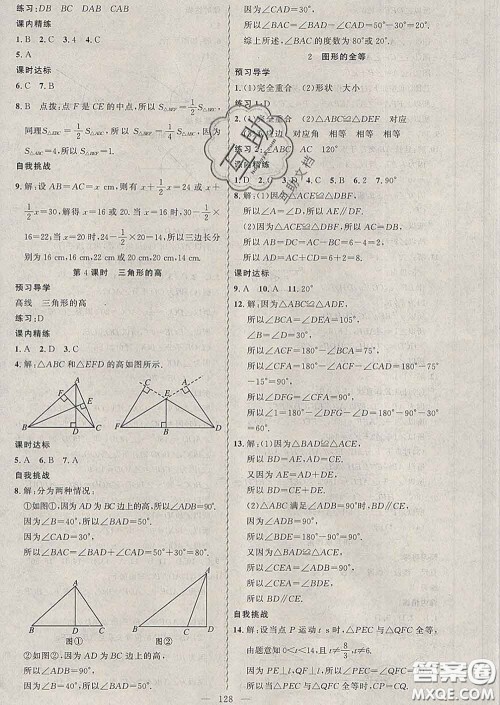 练习:DB BC DAB CAB
课内精练
1. B 2. C 3. C 4. C
5. A
课时达标
6. C 7. B
8. B 点拨:点F是CE的中点,所以S△BEF=1/2 S△BEC,
同理S△BEC=1/2 S△ABC,所以S△BEF=1/4 S△ABC=1.
自我挑战
9. 解:设AB=AC=x cm,则有x+1/2x=24或x+
1/2x=30.解得x=16或20.当x=16时,30-1/2×
16=22;当x=20时,24-1/2×20=14,所以三边长分
别为16 cm,16 cm,22 cm或20 cm,20 cm,14 cm.
第4课时 三角形的高
预习导学
高线 三角形的高
练习:D
课内精练
1. A 2. D 3. C
4. 解:△ABC和△EFD的高如图所示.
A
F
E
B D C
C A
E
B
F D
课时达标
5. A 6. B 7. A
自我挑战
8. 解:分为两种情况:
①如图①,因为AD为BC边上的高,所以∠D=90°.
因为∠B=40°,所以∠BAD=50°.
因为∠CAD=30°,
所以∠BAC=∠BAD+∠CAD=50°+30°=80°.
A
B D C
图①
A
B C D
图②
②如图②,因为AD为BC边上的高,所以∠D=90°.
因为∠B=40°,所以∠BAD=50°.
因为∠CAD=30°,
所以∠BAC=∠BAD-∠CAD=50°-30°=20°.
综上所述,∠BAC的度数为80°或20°.
2 图形的全等
预习导学
1. (1)完全重合 (2)形状 大小
练习1:D
2. (1)完全重合 △ABC≌△DEF 对应
对应角 相等 相等
练习2:∠ABC AC 120°
课内精练
1. D 2. C
8. 解:(1)因为△ACE≌△DBF,
所以∠A=∠D,所以AE∥DF.
(2)因为△ACE≌△DBF,所以AC=DB,
所以AB=DC=AC-BC=8-2=6,
所以AC=AB+BC=6+2=8.
课时达标
9. A 10. A 11. 70°
12. 解:因为△ABC≌△ADE,
所以∠ACB=∠AED=105°,
∠B=∠D=30°.
所以∠ACF=180°-∠ACB=180°-105°
=75°,
所以∠AFC=180°-∠CAF-∠ACF=180°-
15°-75°=90°.
所以∠DFG=∠AFC=90°.
所以∠1=180°-∠D-∠DFG=180°-30°-
90°=60°.
13. 解:(1)因为△BAD≌△ACE,
所以BD=AE,AD=CE.
又因为AE=AD+DE,
所以BD=CE+DE.
(2)△ABC满足∠ADB=90°时,BD∥CE.
因为∠ADB=90°,
所以∠BDE=180°-90°=90°.
又因为△BAD≌△ACE,
所以∠CEA=∠ADB=90°.
所以∠CEA=∠BDE.
所以BD∥CE.
自我挑战
14. 解:设当点P运动t s时,△PEC与△QFC全等,
由题意可知0<t<14,且t≠8/3,t≠6.
因为PE⊥l,QF⊥l,
所以∠PEC=∠QFC=90°.
128
答案圈
MXQE.COM